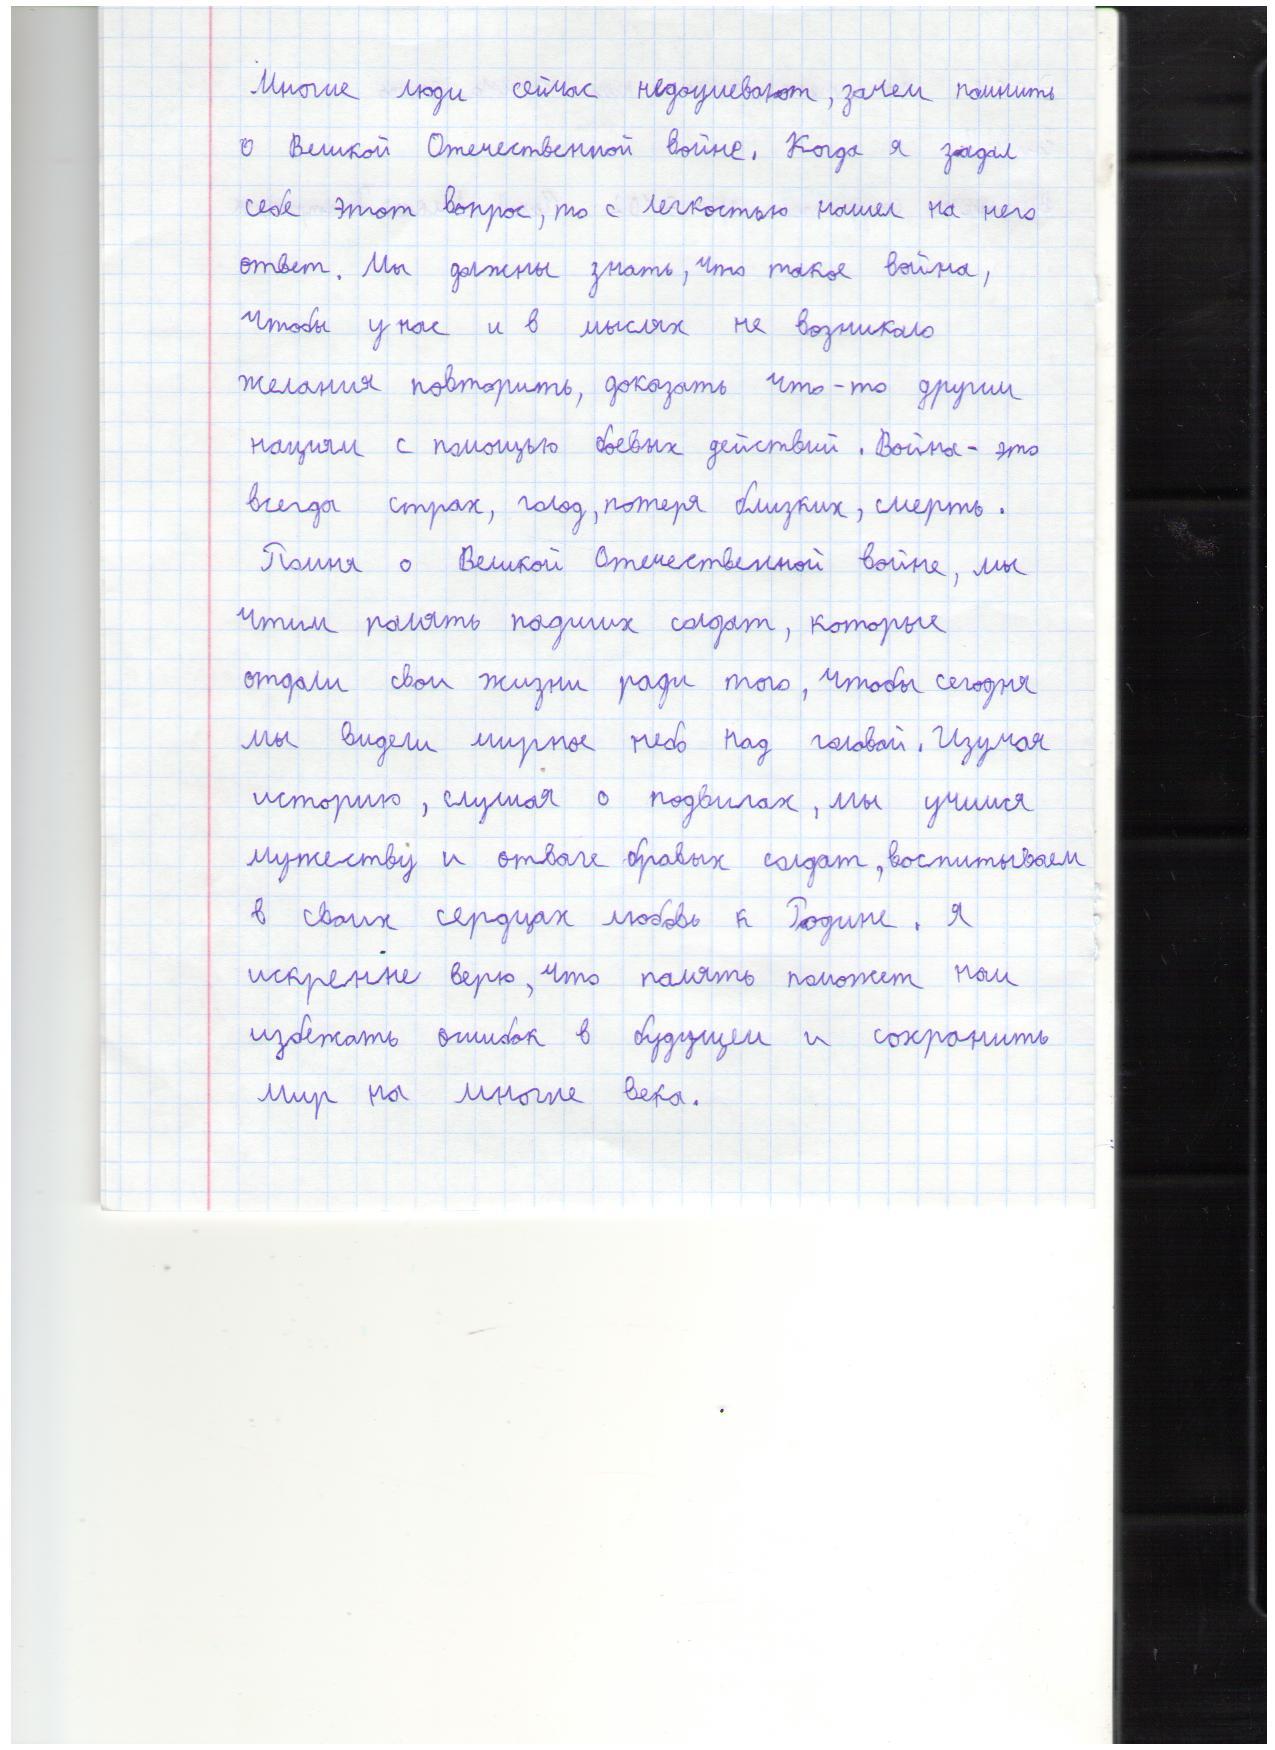 Многие люди сейчас недоумевают, зачем помнить
о Великой Отечественной войне. Когда я задал
себе этот вопрос, то с легкостью нашел на него
ответ. Мы должны знать, что такое война,
чтобы у нас и в мыслях не возникало
желания повторить, доказать что-то другим
нациям с помощью боевых действий. Война - это
всегда страх, голод, потеря близких, смерть.
Помня о Великой Отечественной войне, мы
чтим память падших солдат, которые
отдали свои жизни ради того, чтобы сегодня
мы видели мирное небо над головой. Изучая
историю, слушая о подвигах, мы учимся
мужеству и отваге бравых солдат, воспитываем
в своих сердцах любовь к Родине. Я
искренне верю, что память поможет нам
избежать ошибок в будущем и сохранить
мир на многие века.